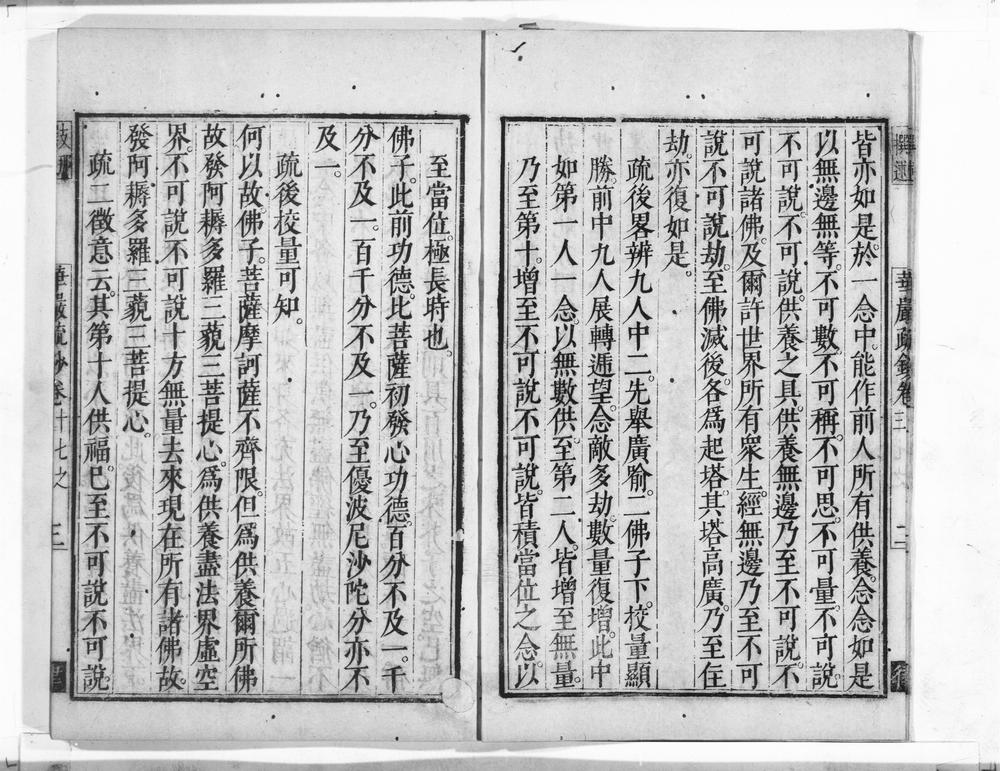 皆亦如是。於一念中。能作前人所有供養。念念如是
以無邊無等。不可數不可稱。不可思。不可量。不可說。
不可說。不可說。供養之具。供養無邊乃至不可說。不
可說諸佛。及爾許世界所有衆生。經無邊乃至不可
說不可說劫。至佛滅後。各爲起塔。其塔高廣。乃至住
劫。亦復如是。
疏後畧辨九人中二。先舉廣喻。二佛子下。校量顯
勝。前中九人展轉遞望。念敵多劫。數量復增。此中
如第一人一念。以無數供。至第二人。皆增至無量。
乃至第十。增至不可說不可說。皆積當位之念。以
至當位。極長時也。
佛子。此前功德。比菩薩初發心功德。百分不及一。千
分不及一。百千分不及一。乃至優波尼沙陀分亦不
及一。
疏後校量可知。
何以故佛子。菩薩摩訶薩不齊限。但爲供養爾所佛
故發阿耨多羅三藐三菩提心。爲供養盡法界虛空
界。不可說不可說十方無量去來現在所有諸佛故。
發阿耨多羅三藐三菩提心。
疏二徵意云。其第十人供福。已至不可說不可說
華嚴疏鈔卷
三
二
華嚴疏鈔卷十七之
三